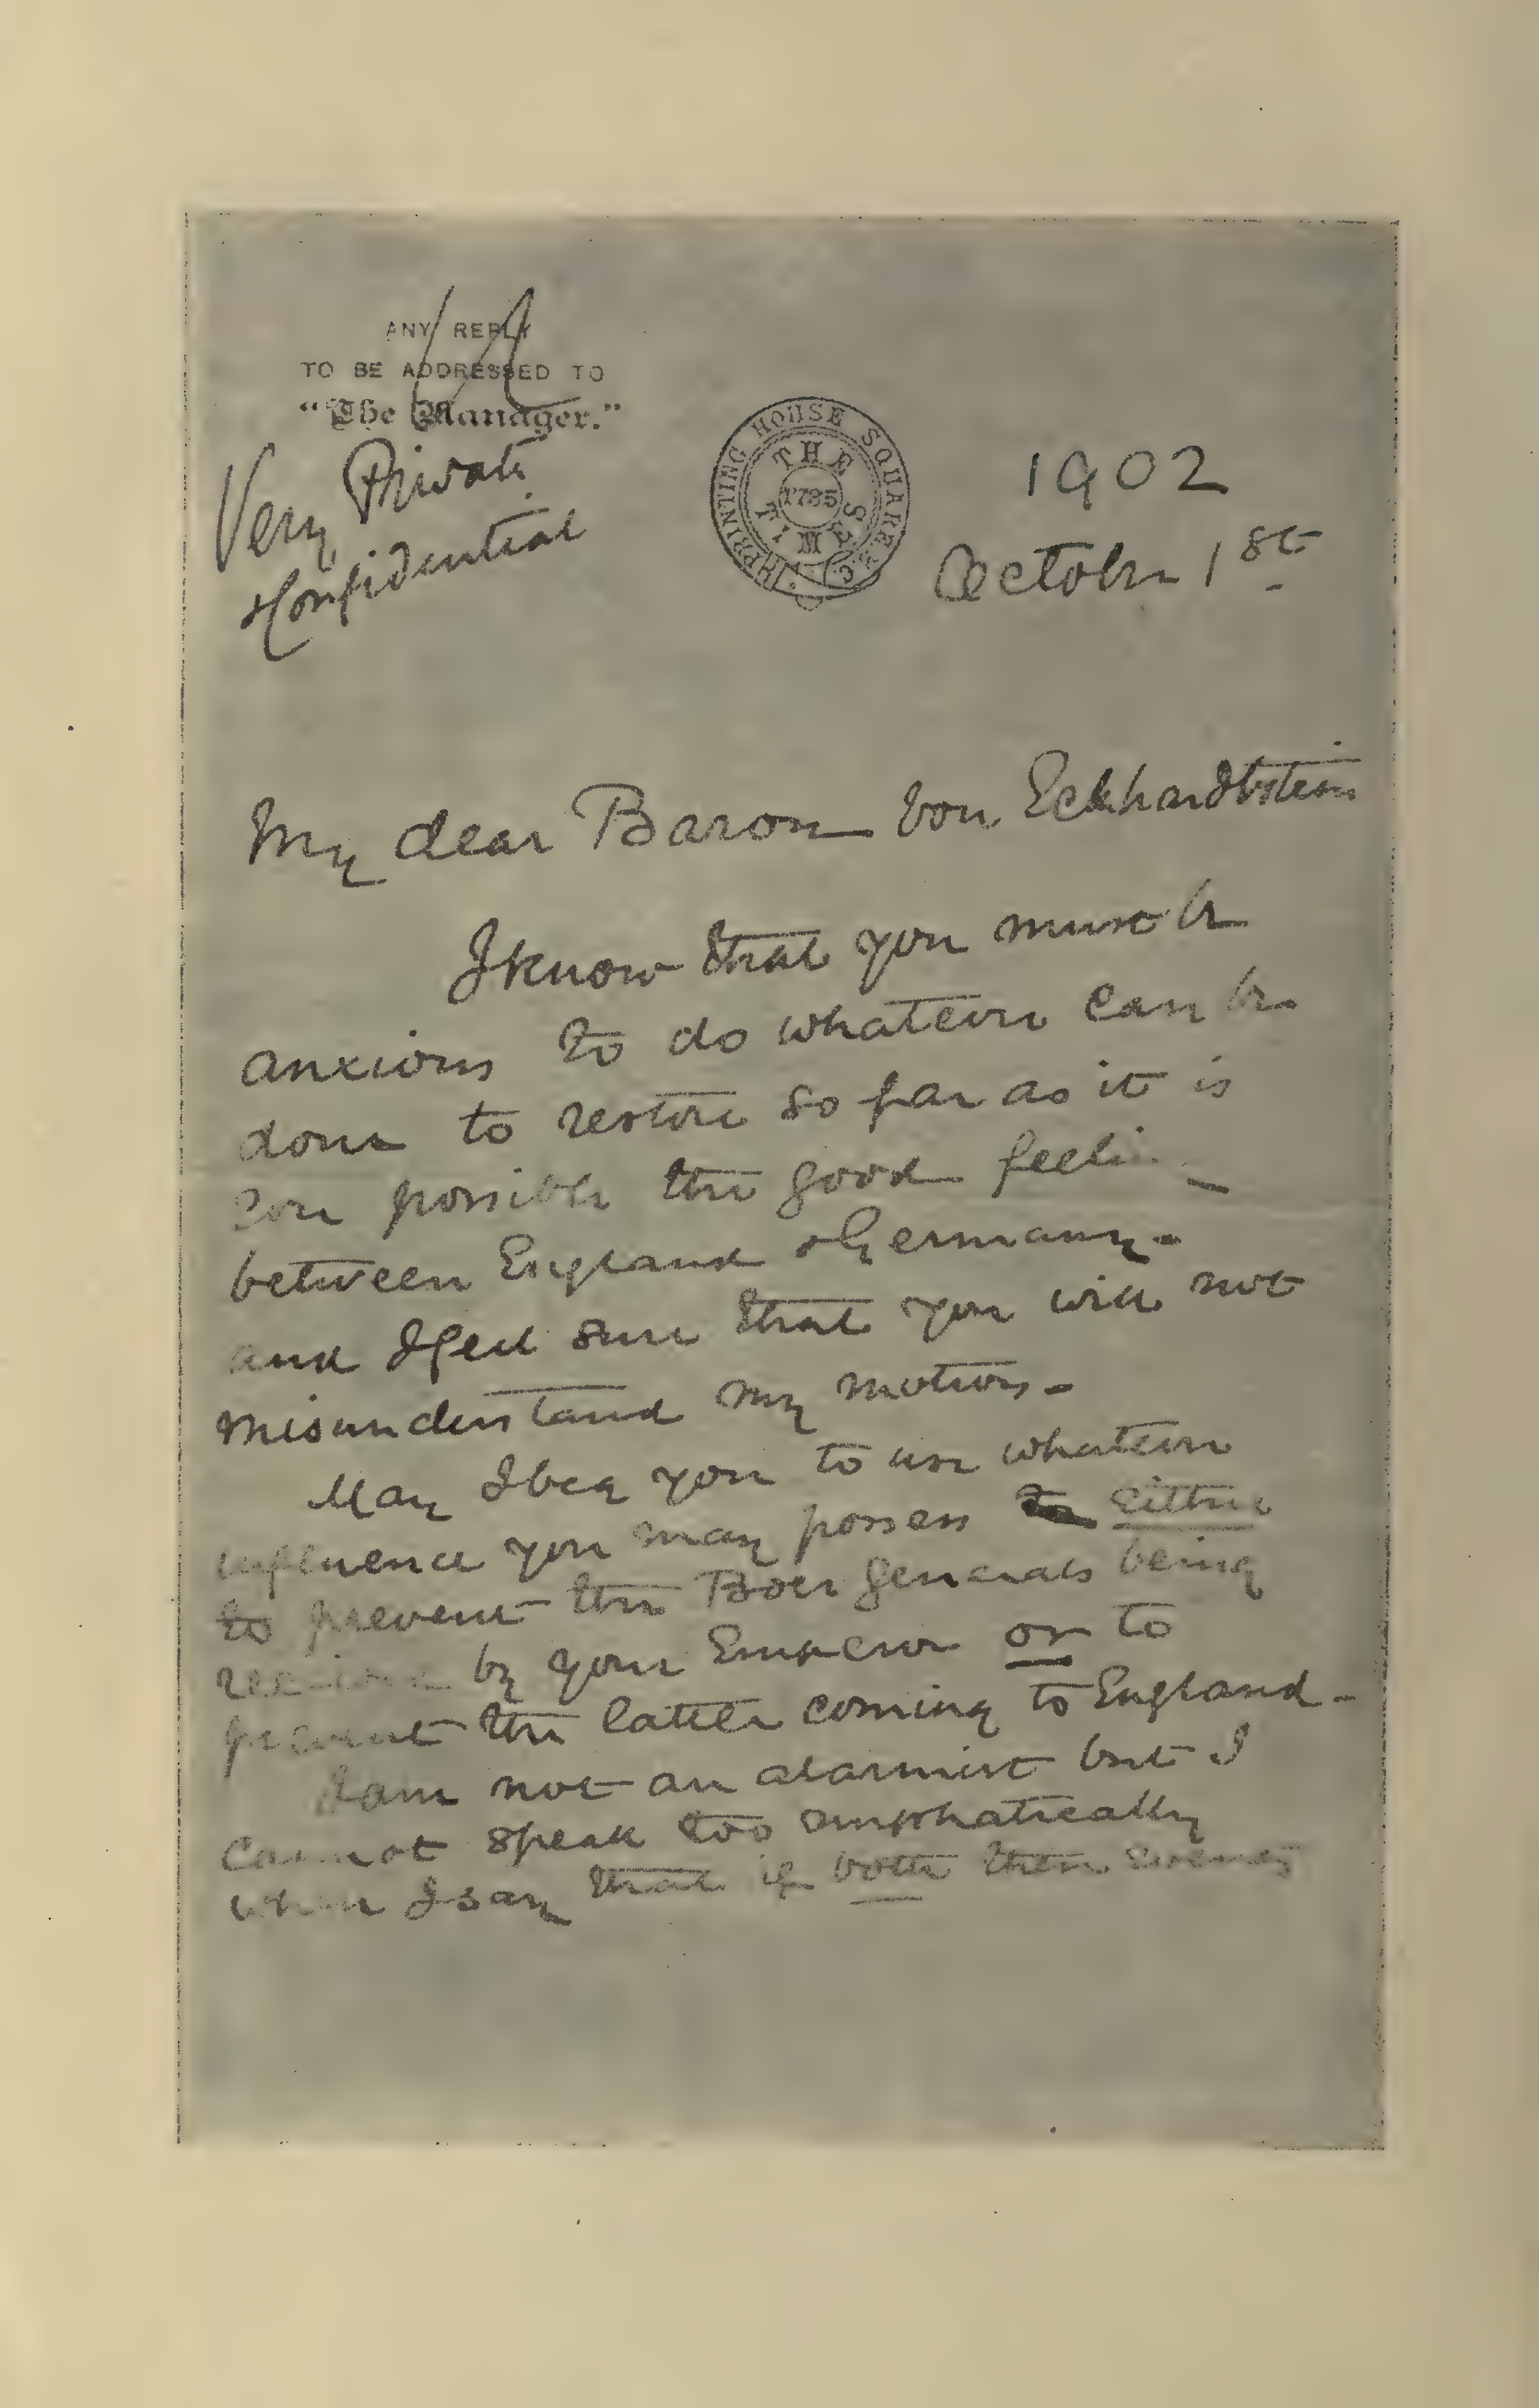 ANY REPLY
TO BE ADDRESSED TO
"The Manager."
Very Private
& Confidential
PRINTING HOUSE SQUARE E.C.
THE TIMES
1785
1902
October 1st
My dear Baron von Eckhardtstein
I know that you must be
anxious to do whatever can be
done to restore so far as it is
possible the good feeling
between England & Germany -
and I feel sure that you will not
misunderstand my motives -
May I beg you to use whatever
influence you may possess either
to prevent the Boer Generals being
received by your Emperor or to
prevent the latter coming to England -
I am not an alarmist but I
cannot speak too emphatically
when I say that if both these events